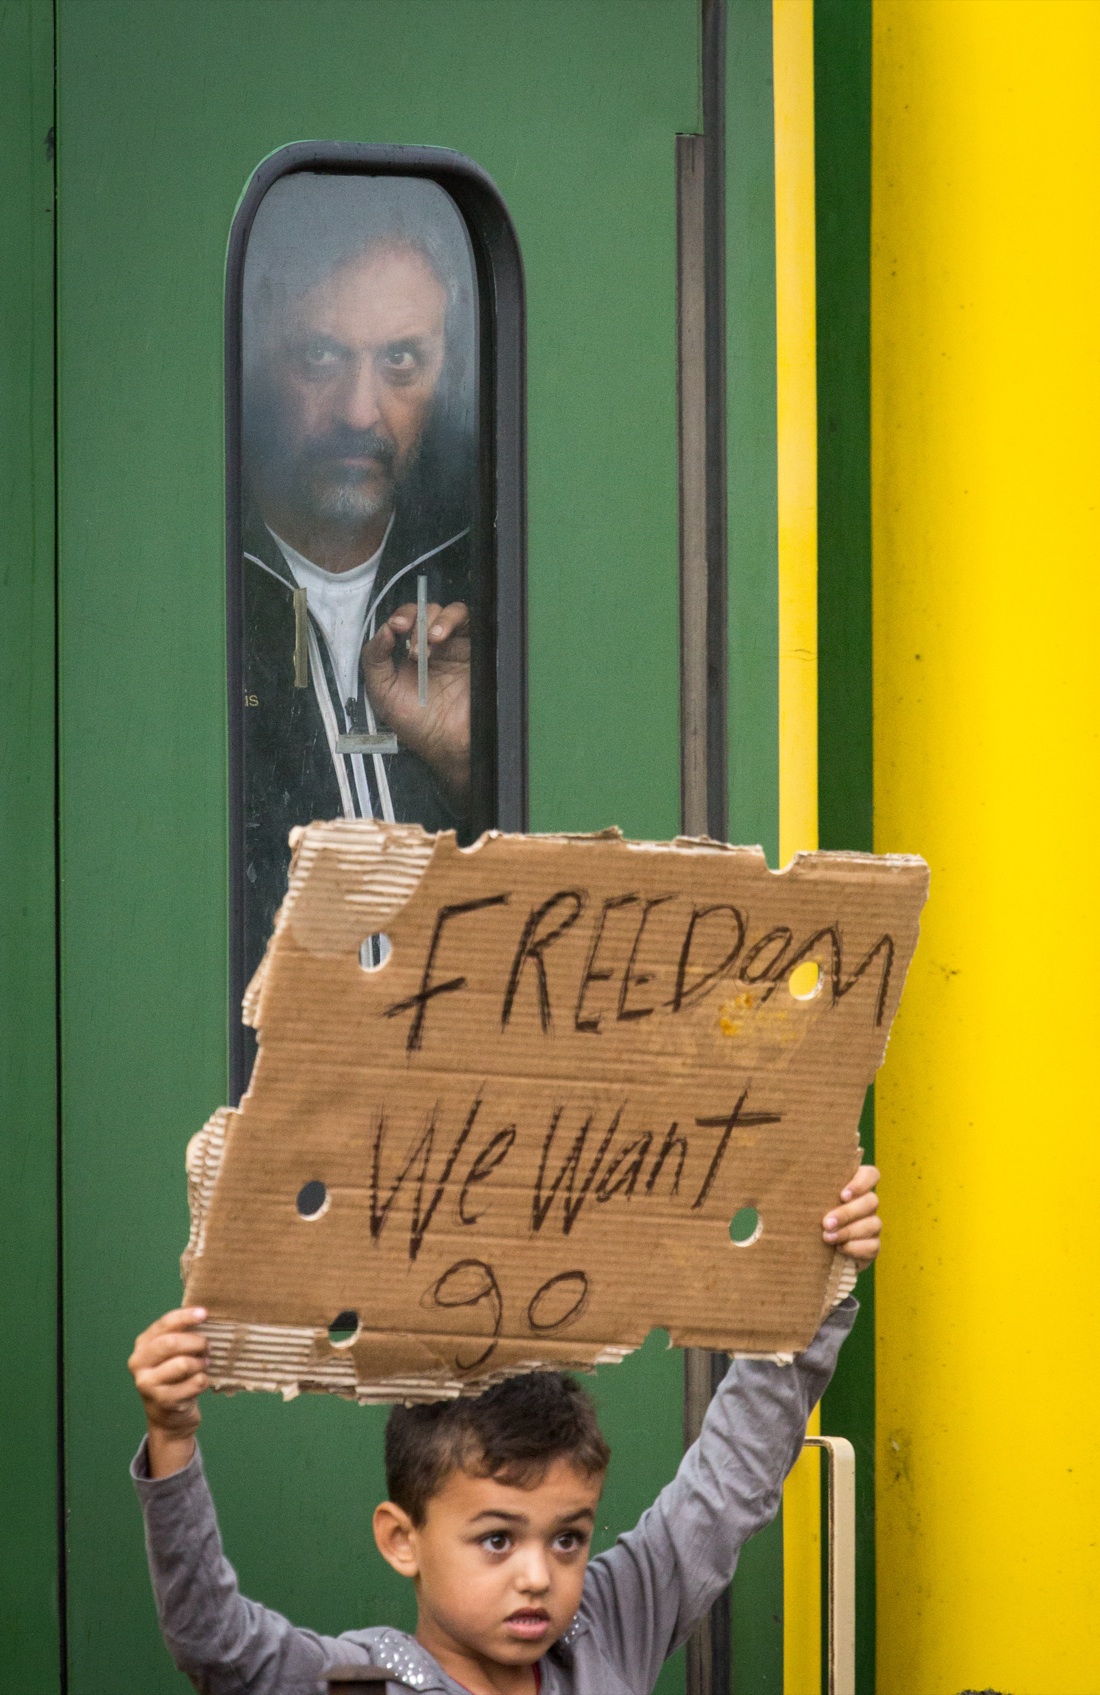 is
FREEDom
We Want
go